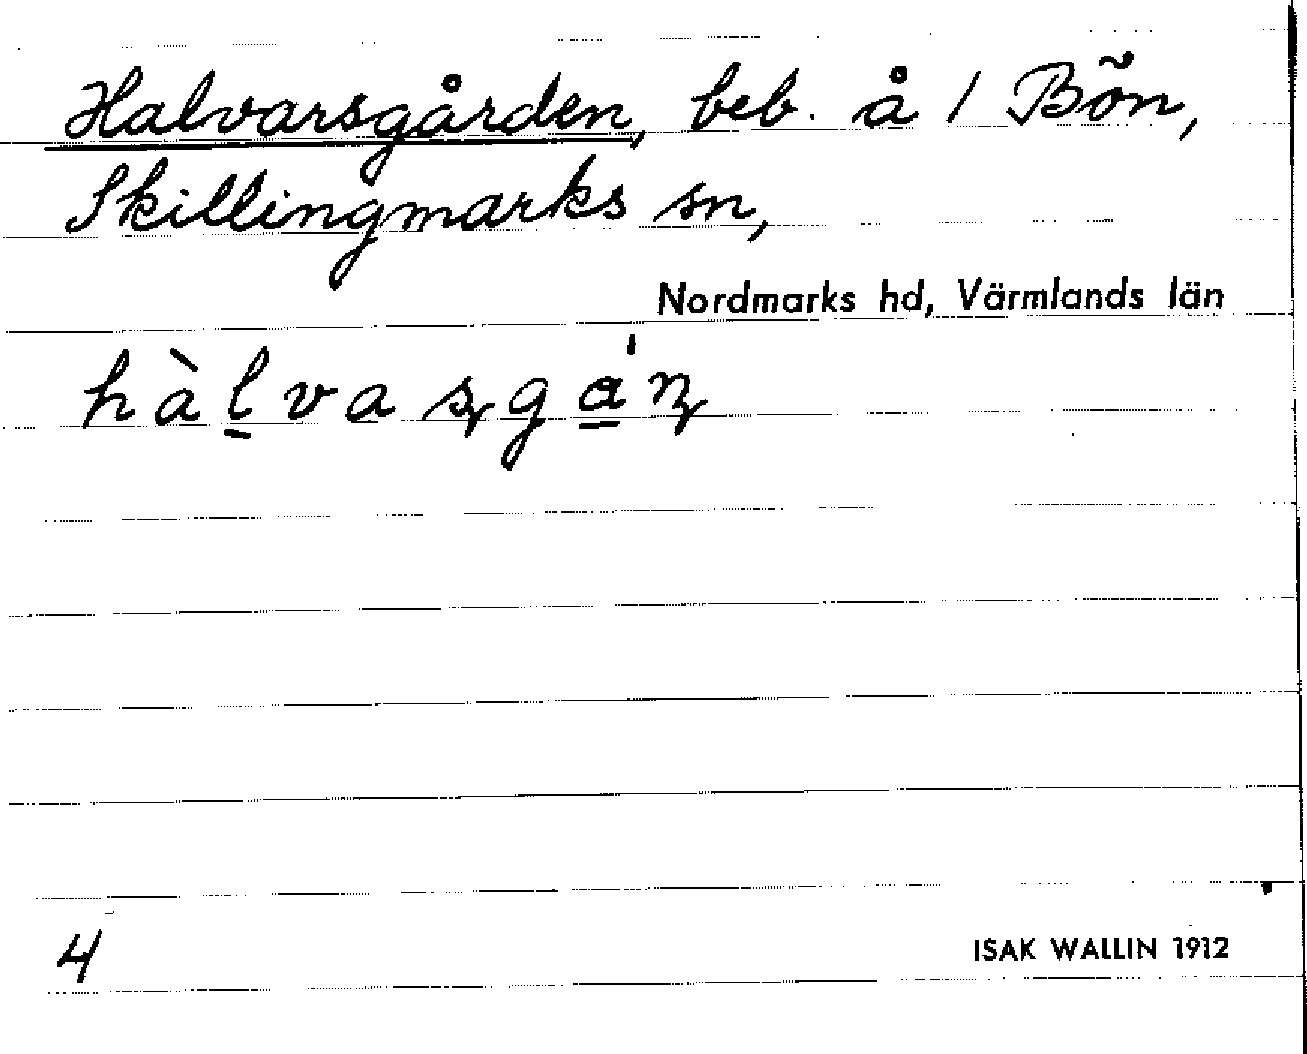 Halvarsgården, beb. å 1 Bön,
Skillingmarks sn,
Nordmarks hd, Värmlands län
hàl̲vaʂga̲̍ɳ
4
ISAK WALLIN 1912